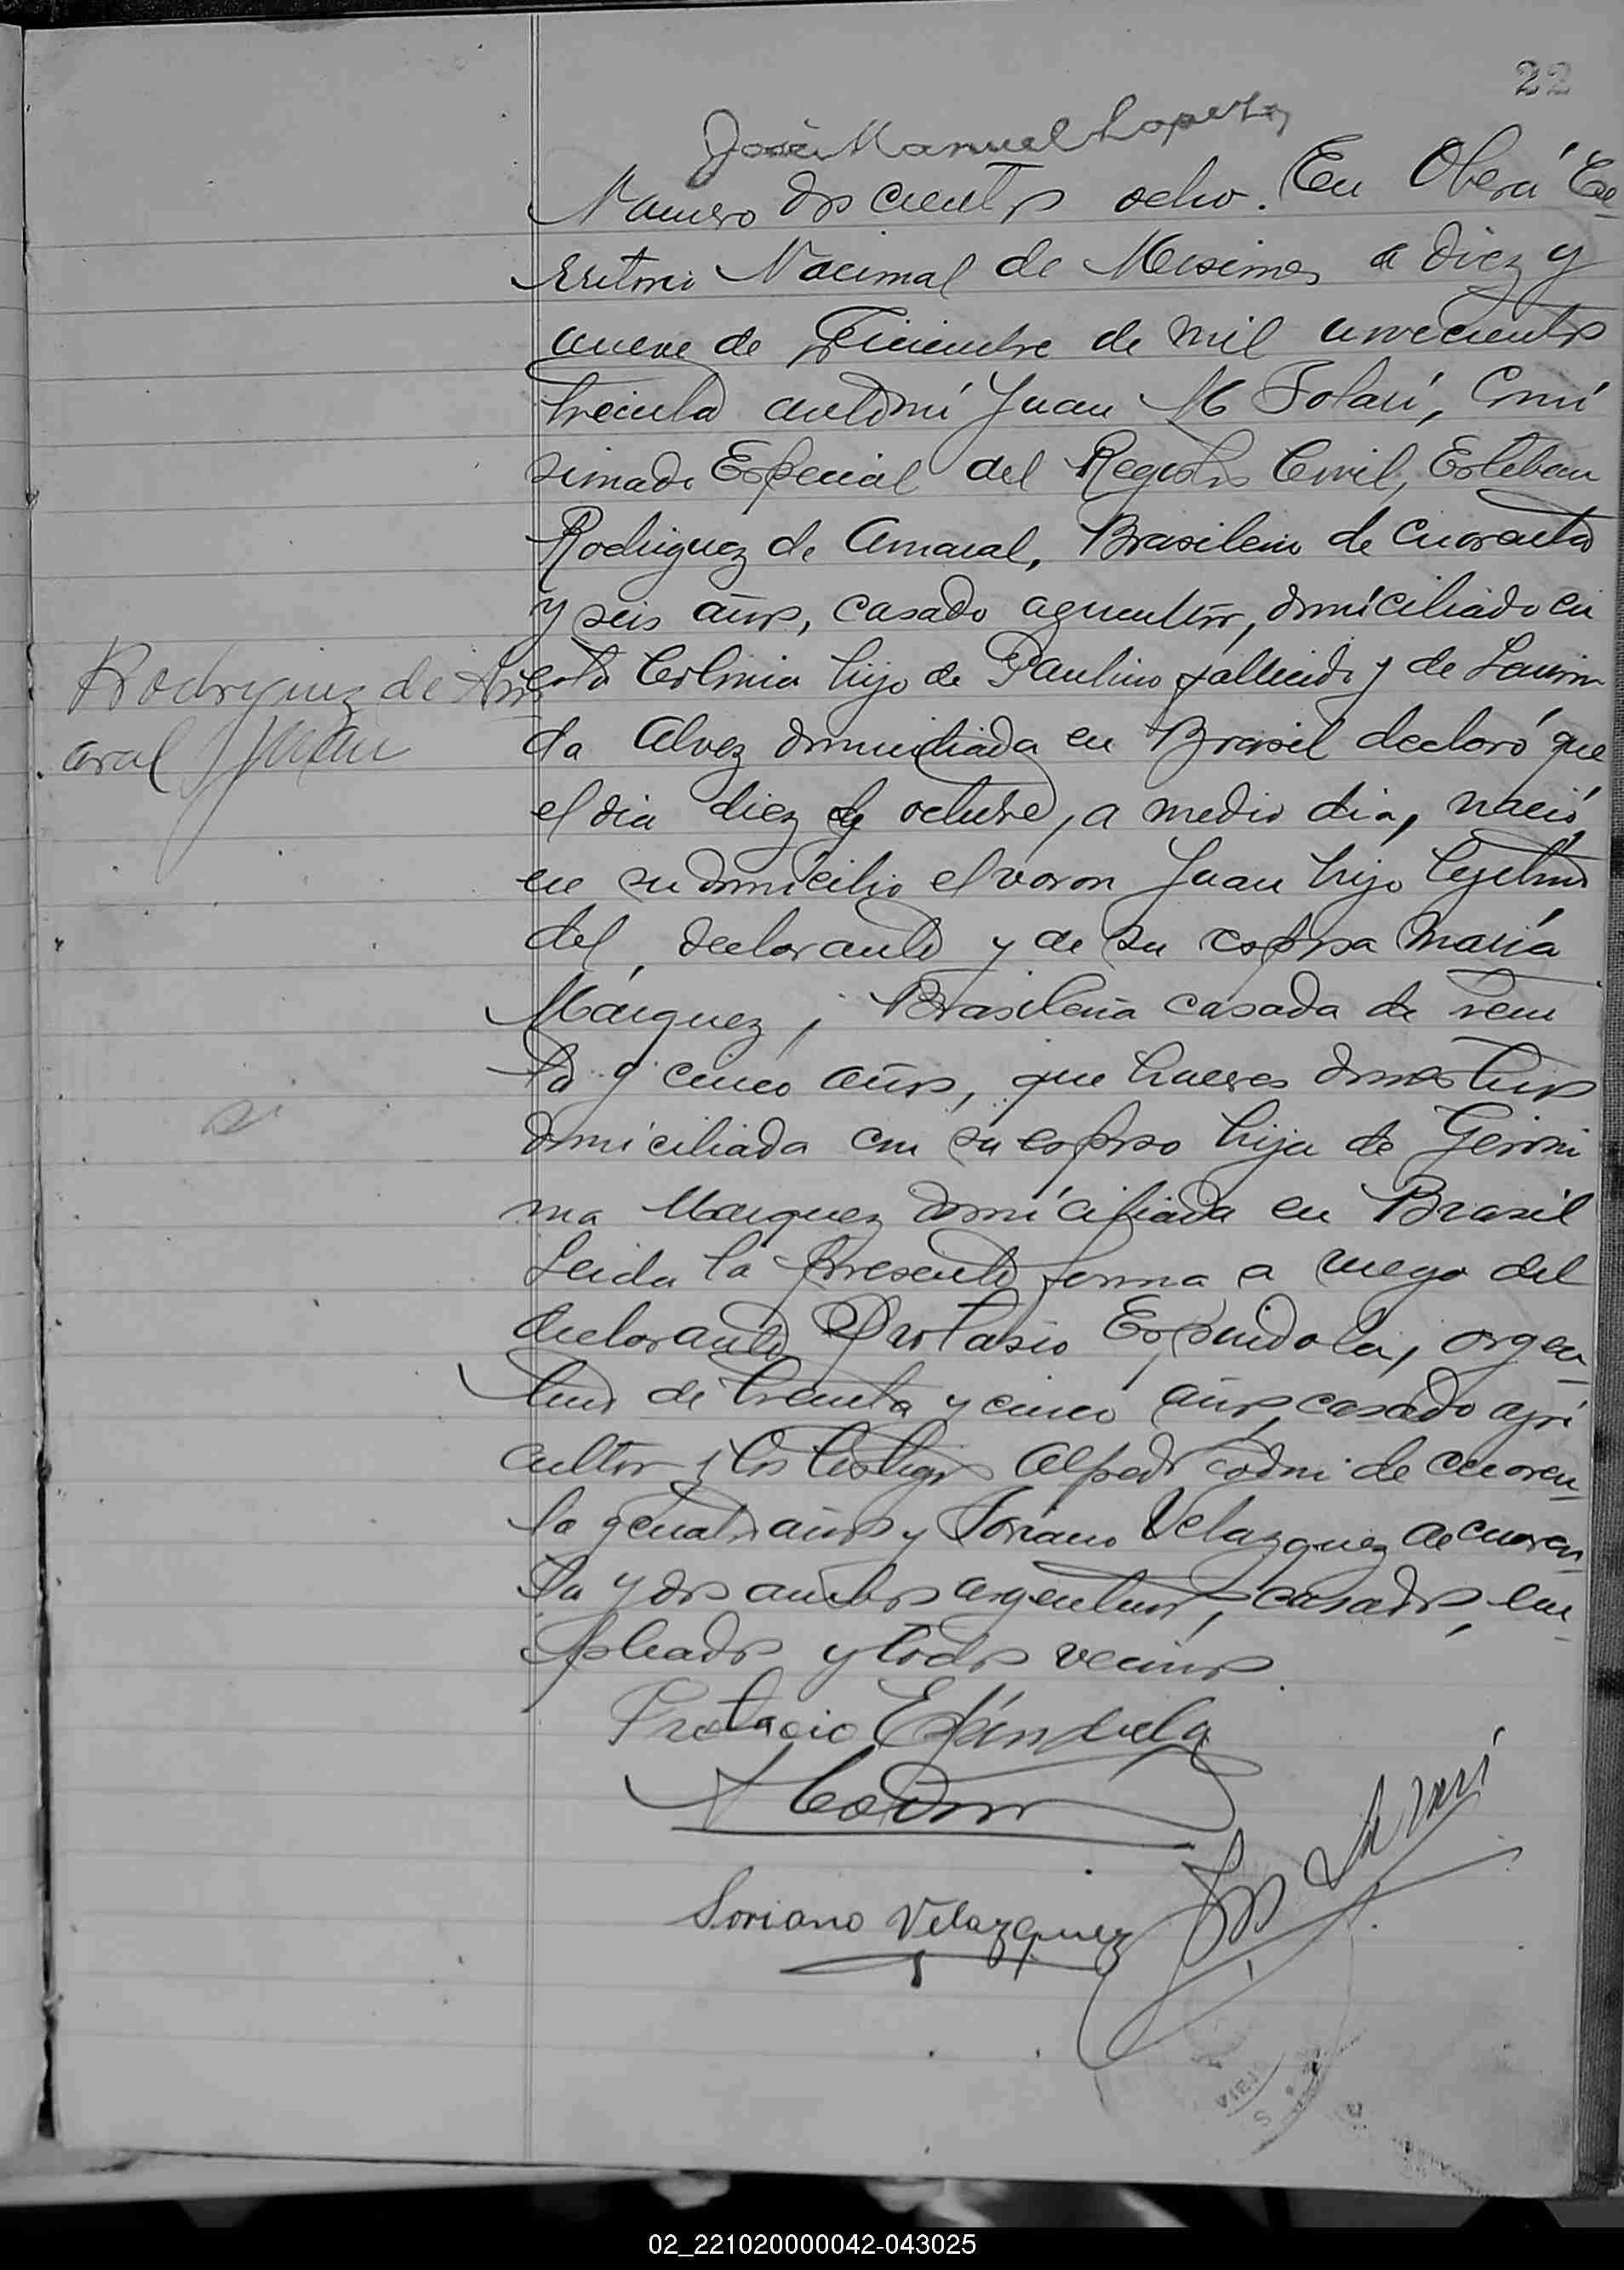 22
José Manuel Lopez
Numero doscientos ocho. En Oberá Te-
rritorio Nacional de Misiones a diez y
nueve de Diciembre de mil novecientos
treinta ante mí Juan M Solari, Comi
sionado Especial del Registro Civil, Esteban
Rodriguez de Amaral, Brasilero de cuarenta
y seis años, casado agricultor, domiciliado en
Rodriguez de Am esta Colonia hijo de Paulino fallecido y de Laurin
aral Juan da Alvez domiciliada en Brasil declaró que
el dia diez de octubre, a medio dia, nació
en su domicilio el varon Juan hijo legitimo
del declarante y de su esposa María
Márquez, Brasileña casada de vein
te y cinco años, que haceres domesticos
domiciliada con su esposo hija de Geroni
ma Marquez domiciliada en Brasil
Leida la presente firma a ruego del
declarante Protasio Espindola, argen-
tino de treinta y cinco años, casado agri
cultor y los testigos Alfredo Codni de cuaren-
ta y cuatro años y Soriano Velazquez de cuaren-
ta y dos ambos argentinos, casados, em-
pleados y todos vecinos
Protacio Espíndula
A Codni
Soriano Velazquez
02_221020000042-043025